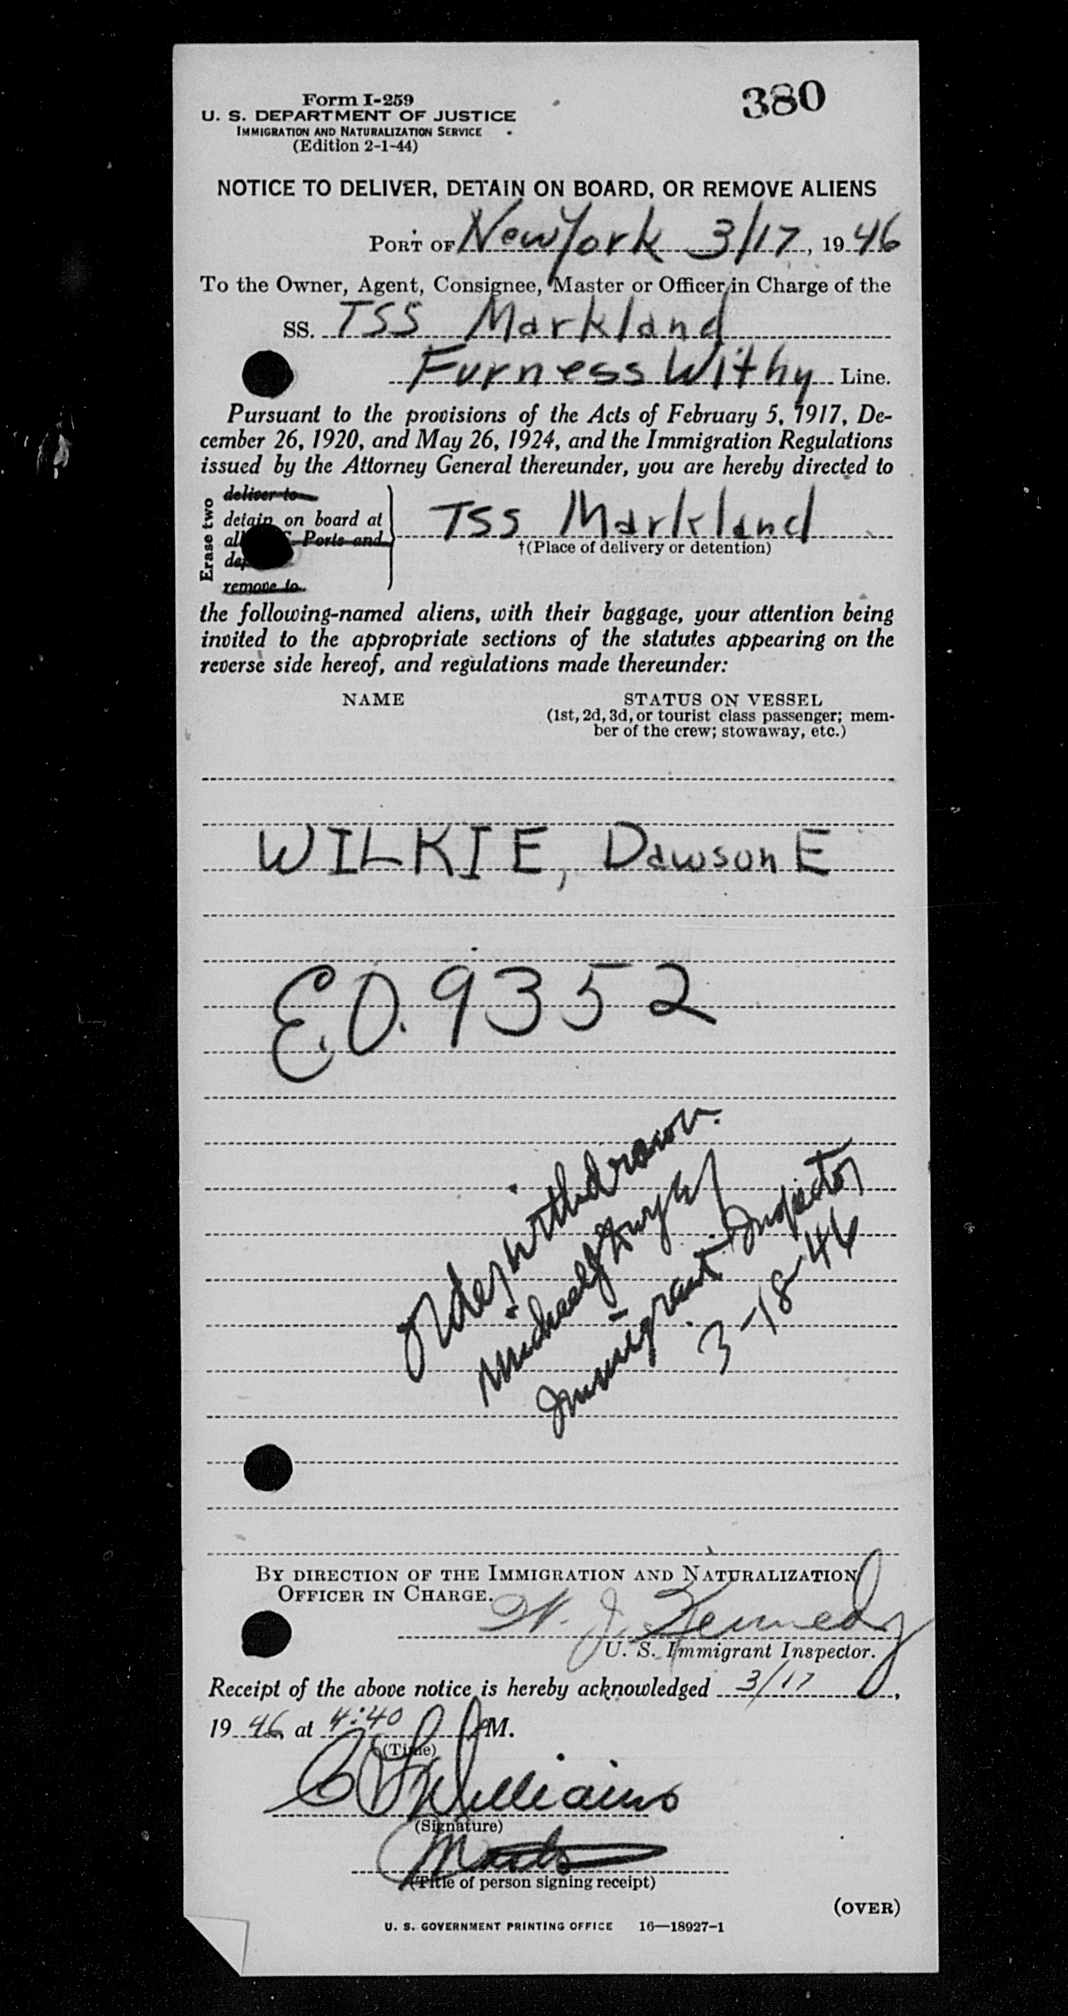 Form I-259
380
U. S. DEPARTMENT OF JUSTICE
IMMIGRATION AND NATURALIZATION SERVICE
(Edition 2-1-44)
NOTICE TO DELIVER, DETAIN ON BOARD, OR REMOVE ALIENS
PORT OF New York 3/17, 1946
To the Owner, Agent, Consignee, Master or Officer in Charge of the
SS. TSS Markland
Furness Withy Line.
Pursuant to the provisions of the Acts of February 5, 1917, De-
cember 26, 1920, and May 26, 1924, and the Immigration Regulations
issued by the Attorney General thereunder, you are hereby directed to
Erase two
deliver to
detain on board at
Ports and
remove to
TSS Markland
†(Place of delivery or detention)
the following-named aliens, with their baggage, your attention being
invited to the appropriate sections of the statutes appearing on the
reverse side hereof, and regulations made thereunder:
NAME
STATUS ON VESSEL
(1st, 2d, 3d, or tourist class passenger; mem-
ber of the crew; stowaway, etc.)
WILKIE, Dawson E
E.O. 9352
Order withdrawn.
Michael J
Immigrant Inspector
3-18-46
BY DIRECTION OF THE IMMIGRATION AND NATURALIZATION
OFFICER IN CHARGE.
W. J. Kennedy
U. S. Immigrant Inspector.
Receipt of the above notice is hereby acknowledged 3/17,
1946, at 4:40 PM.
(Time)
Williams
(Signature)
(Title of person signing receipt)
(OVER)
U. S. GOVERNMENT PRINTING OFFICE 16—18927-1